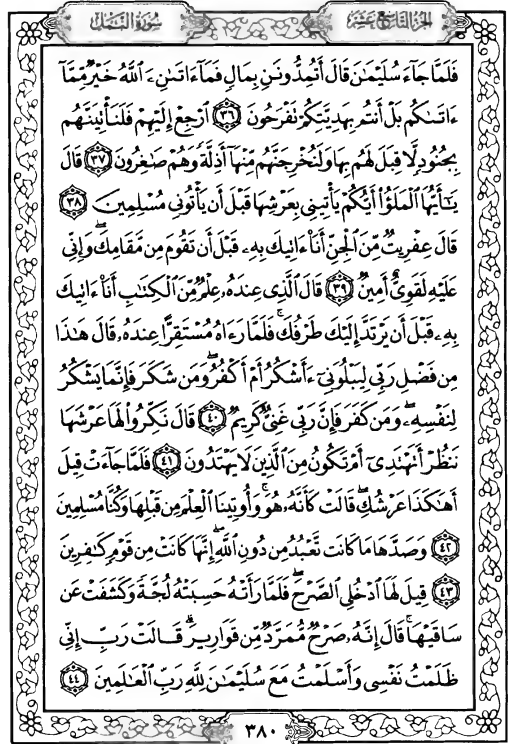 الجزء التاسع عشر
سورة النمل
فَلَمَّا جَآءَ سُلَيْمَٰنَ قَالَ أَتُمِدُّونَنِ بِمَالٍ فَمَآ ءَاتَىٰنِۦَ ٱللَّهُ خَيْرٌ مِّمَّآ
ءَاتَىٰكُم بَلْ أَنتُم بِهَدِيَّتِكُمْ نَفْرَحُونَ ٣٦ ٱرْجِعْ إِلَيْهِمْ فَلَنَأْتِيَنَّهُم
بِجُنُودٍ لَّا قِبَلَ لَهُم بِهَا وَلَنُخْرِجَنَّهُم مِّنْهَآ أَذِلَّةً وَهُمْ صَٰغِرُونَ ٣٧ قَالَ
يَٰٓأَيُّهَا ٱلْمَلَؤُا۟ أَيُّكُمْ يَأْتِينِى بِعَرْشِهَا قَبْلَ أَن يَأْتُونِى مُسْلِمِينَ ٣٨
قَالَ عِفْرِيتٌ مِّنَ ٱلْجِنِّ أَنَا۠ ءَاتِيكَ بِهِۦ قَبْلَ أَن تَقُومَ مِن مَّقَامِكَ ۖ وَإِنِّى
عَلَيْهِ لَقَوِىٌّ أَمِينٌ ٣٩ قَالَ ٱلَّذِى عِندَهُۥ عِلْمٌ مِّنَ ٱلْكِتَٰبِ أَنَا۠ ءَاتِيكَ
بِهِۦ قَبْلَ أَن يَرْتَدَّ إِلَيْكَ طَرْفُكَ ۚ فَلَمَّا رَءَاهُ مُسْتَقِرًّا عِندَهُۥ قَالَ هَٰذَا
مِن فَضْلِ رَبِّى لِيَبْلُوَنِىٓ ءَأَشْكُرُ أَمْ أَكْفُرُ ۖ وَمَن شَكَرَ فَإِنَّمَا يَشْكُرُ
لِنَفْسِهِۦ ۖ وَمَن كَفَرَ فَإِنَّ رَبِّى غَنِىٌّ كَرِيمٌ ٤٠ قَالَ نَكِّرُوا۟ لَهَا عَرْشَهَا
نَنظُرْ أَتَهْتَدِىٓ أَمْ تَكُونُ مِنَ ٱلَّذِينَ لَا يَهْتَدُونَ ٤١ فَلَمَّا جَآءَتْ قِيلَ
أَهَٰكَذَا عَرْشُكِ ۖ قَالَتْ كَأَنَّهُۥ هُوَ ۚ وَأُوتِينَا ٱلْعِلْمَ مِن قَبْلِهَا وَكُنَّا مُسْلِمِينَ
٤٢ وَصَدَّهَا مَا كَانَت تَّعْبُدُ مِن دُونِ ٱللَّهِ ۖ إِنَّهَا كَانَتْ مِن قَوْمٍ كَٰفِرِينَ
٤٣ قِيلَ لَهَا ٱدْخُلِى ٱلصَّرْحَ ۖ فَلَمَّا رَأَتْهُ حَسِبَتْهُ لُجَّةً وَكَشَفَتْ عَن
سَاقَيْهَا ۚ قَالَ إِنَّهُۥ صَرْحٌ مُّمَرَّدٌ مِّن قَوَارِيرَ ۗ قَالَتْ رَبِّ إِنِّى
ظَلَمْتُ نَفْسِى وَأَسْلَمْتُ مَعَ سُلَيْمَٰنَ لِلَّهِ رَبِّ ٱلْعَٰلَمِينَ ٤٤
٣٨٠